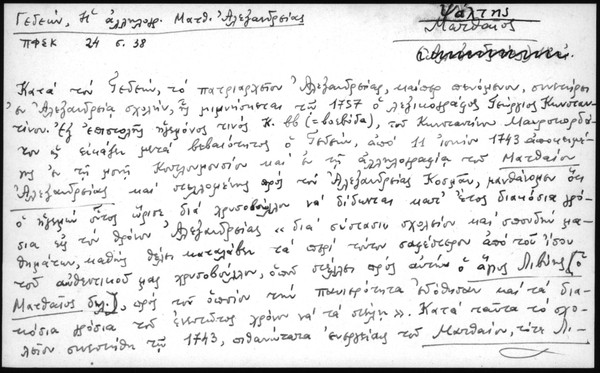 Γεδεών, Ἡ ἀλληλογρ. Ματθ. Ἀλεξανδρείας
ΠΦΕΚ 24 σ. 38
Ψάλτης
Ματθαῖος
Κατὰ τὸν Γεδεών, τὸ πατριαρχεῖον Ἀλεξανδρείας, καίπερ πενόμενον, συνετήρει
ἐν Ἀλεξανδρείᾳ σχολήν, ἧς μιμνήσκεται τῷ 1757 ὁ λεξικογράφος Γεώργιος Κωνσταν-
τίνου. Ἐξ ἐπιστολῆς ἡγεμόνος τινός Κ. ββ (= βοεβόδα), τοῦ Κωνσταντίνου Μαυροκορδά-
του ὡς εἰκάζει μετὰ βεβαιότητος ὁ Γεδεών, ἀπό 11 Ἰουνίου 1743 ἀποκειμέ-
νης ἐν τῇ μονῇ Κουτλουμουσίου καὶ ἐν τῇ ἀλληλογραφίᾳ τοῦ Ματθαίου
Ἀλεξανδρείας καὶ στελλομένης πρὸς τὸν Ἀλεξανδρείας Κοσμᾶν, μανθάνομεν ὅτι
ὁ ἡγεμὼν οὗτος ὥρισε διὰ χρυσοβούλλου νὰ δίδωνται κατ' ἔτος διακόσια γρό-
σια εἰς τὸν θρόνον Ἀλεξανδρείας « διὰ σύστασιν σχολείου καὶ σπουδὴν μα-
θημάτων, καθὼς θέλει καταλάβει τὰ περὶ τούτου σαφέστερον ἀπὸ τοῦ ἴσου
τοῦ αὐθεντικοῦ μας χρυσοβούλλου, ὁποῦ στέλλει πρὸς αὐτὴν ὁ ἅγιος Λιβύης [ὁ
Ματθαῖος δηλ.], πρὸς τὸν ὁποῖον τὴν πανιερότητα ἐδόθησαν καὶ τὰ δια-
κόσια γρόσια τοῦ ἐνεστῶτος χρόνου νὰ τὰ στείλῃ ». Κατὰ ταῦτα τὸ σχο-
λεῖον συνεστήθη τῷ 1743, πιθανώτατα ἐνεργείαις τοῦ Ματθαίου, τότε Λι-